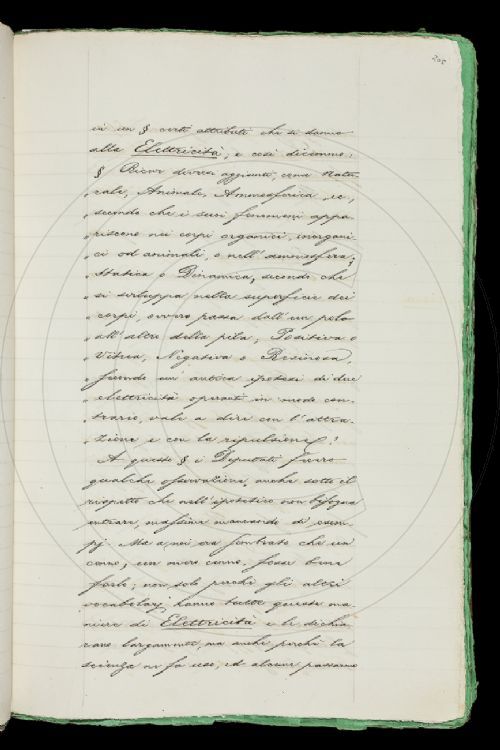 205
in un § certi attributi che si danno
alla Elettricità, e così dicemmo:
§ Riceve diversi aggiunti, come Natu-
„ rale, Animale, Ammosferica, ec.,
„ secondo che i suoi fenomeni appa-
„ riscono nei corpi organici, inorgani-
„ ci od animali, o nell'ammosfera;
„ Statica o Dinamica, secondo che
„ si sviluppa nella superficie dei
„ corpi, ovvero passa dall'un polo
„ all'altro della pila; Positiva o
„ Vitrea, Negativa o Resinosa,
„ secondo un'antica ipotesi di due
„ elettricità operanti in modo con-
„ trario, vale a dire con l'attra-
„ zione e con la ripulsione!
A questo § i Deputati fecero
qualche osservazione, anche sotto il
rispetto che nell'ipotetico non bisogna
entrare, massime mancando di esem-
pj. Ma a noi era sembrato che un
cenno, un mero cenno, fosse bene
farlo; non solo perchè gli altri
vocabolarj hanno tutte queste ma-
niere di Elettricità e le dichia-
rano largamente, ma anche perchè la
scienza ne fa uso, ed alcune passarono